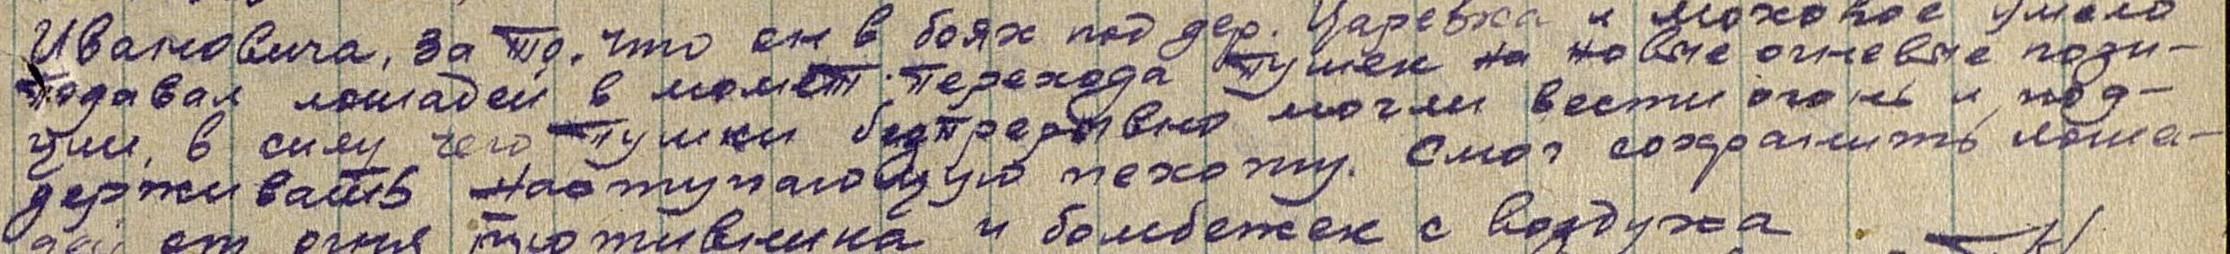 Ивановича, за то, что он в боях под дер. Царевка и Моховое умело
подавал лошадей в момет перехода пушек на новые огневые пози-
ции, в силу чего пушки безпрерывно могли вести огонь и под-
держивать наступающую пехоту. Смог сохранить лоша-
дей от огня противника и бомбежек с воздуха